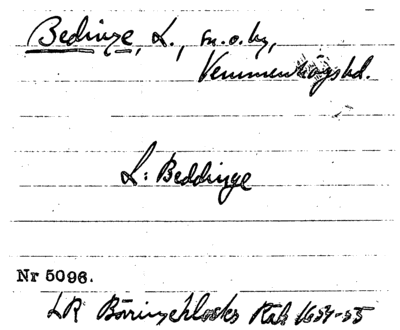 Bedinge, L., sn. o. by,
Vemmenhögs hd.
L: Beddinge
Nr 5096.
LR Börringekloster Räk 1654-55